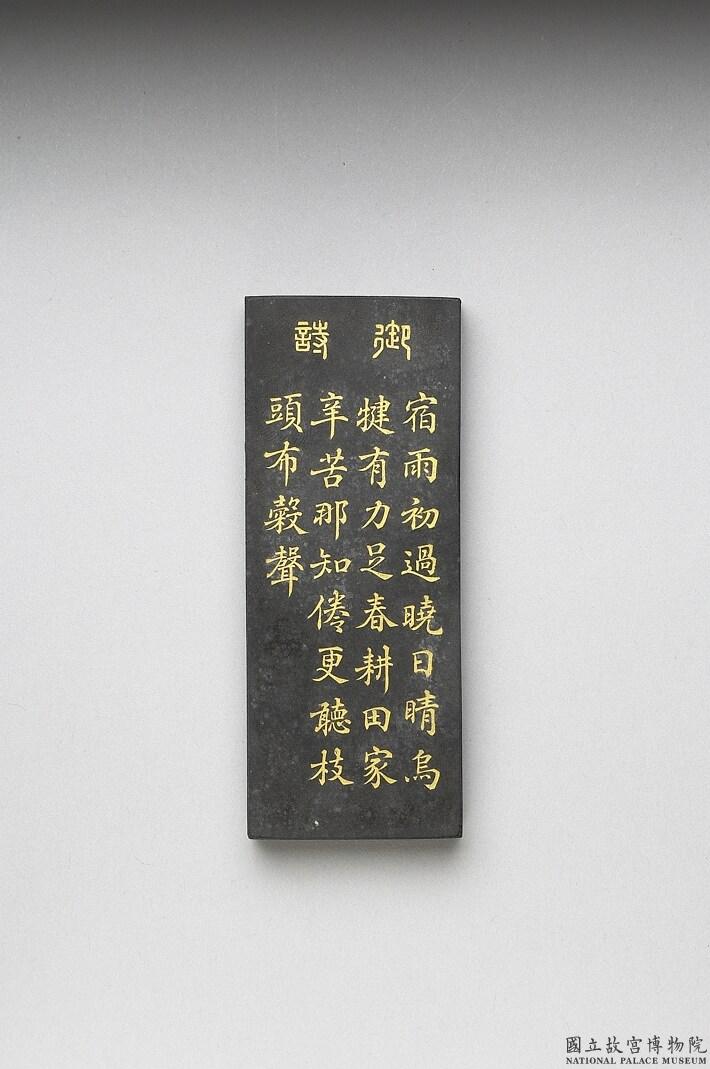 御詩
宿雨初過曉日晴烏
犍有力足春耕田家
辛苦那知倦更聽枝
頭布穀聲
國立故宮博物院
NATIONAL PALACE MUSEUM